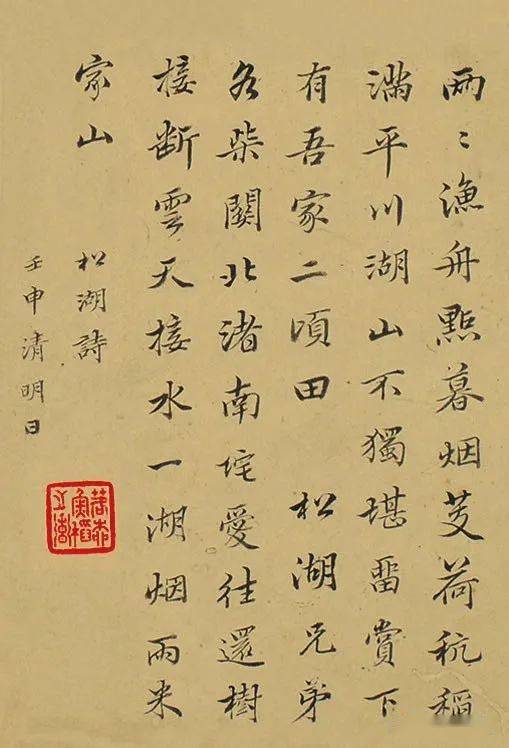 两〻漁舟點暮烟芰荷秔稻
满平川湖山不獨堪畱賞下
有吾家二頃田 松湖兄弟
各柴關北渚南垞愛往還樹
接斷雲天接水一湖烟雨米
家山
松湖詩
壬申清明日